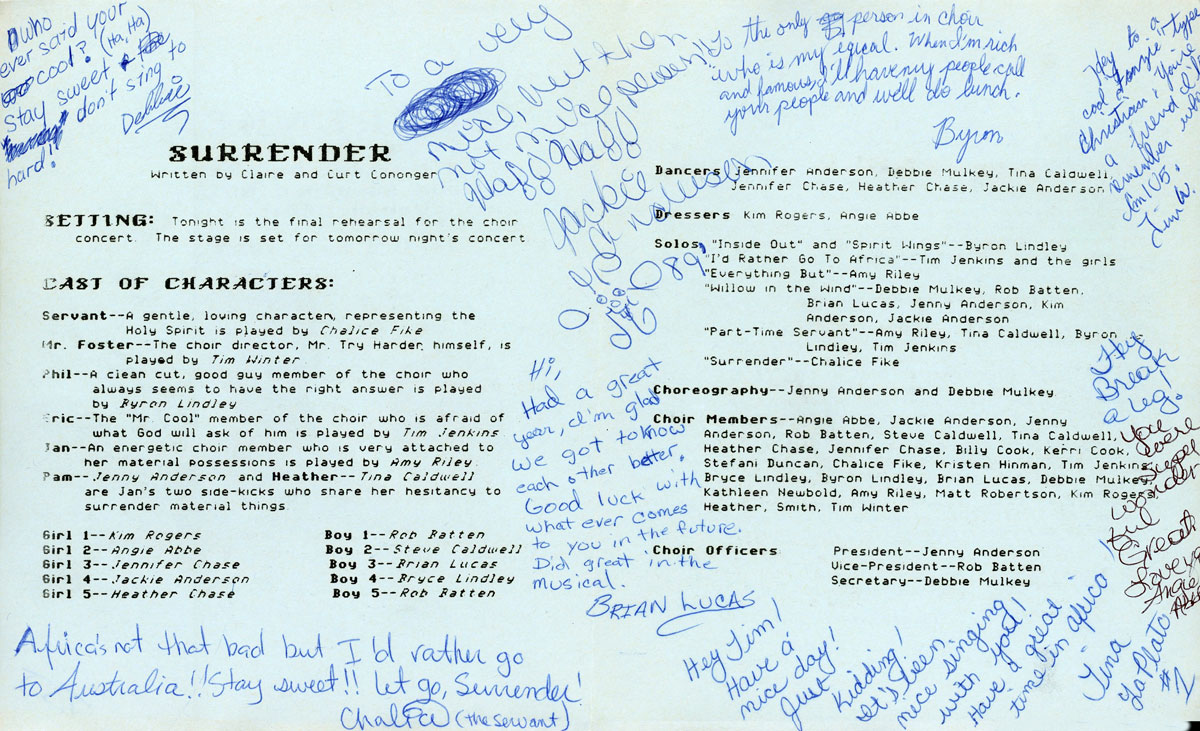 who
ever said your
cool? (Ha, Ha)
Stay sweet,
don't sing to
hard!!
Debbie
To a very
nice, but then
not nice person!!
Jackie
Anderson
89'
To the only person in choir
"who is my equal. When I'm rich
and famous, I'll have my people call
your people and we'll do lunch.
Byron
Hey to a
cool type
Christian! You're
a friend I'll
remember
Tim W.
SURRENDER
Written by Claire and Curt Cononger
SETTING: Tonight is the final rehearsal for the choir
concert. The stage is set for tomorrow night's concert
CAST OF CHARACTERS:
Servant--A gentle, loving character, representing the
Holy Spirit is played by Chalice Fike
Mr. Foster--The choir director, Mr. Try Harder himself, is
played by Tim Winter
Phil--A clean cut, good guy member of the choir who
always seems to have the right answer is played
by Byron Lindley
Eric--The "Mr. Cool" member of the choir who is afraid of
what God will ask of him is played by Tim Jenkins
Jan--An energetic choir member who is very attached to
her material possessions is played by Amy Riley.
Pam--Jenny Anderson and Heather--Tina Caldwell
are Jan's two side-kicks who share her hesitancy to
surrender material things.
Girl 1--Kim Rogers Boy 1--Rob Batten
Girl 2--Angie Abbe Boy 2--Steve Caldwell
Girl 3--Jennifer Chase Boy 3--Brian Lucas
Girl 4--Jackie Anderson Boy 4--Bryce Lindley
Girl 5--Heather Chase Boy 5--Rob Batten
Africa's not that bad but I'd rather go
to Australia!! Stay sweet!! Let go, Surrender!
Chalice (the servant)
Hi,
Had a great
year, I'm glad
we got to know
each other better.
Good luck with
what ever comes
to you in the future.
Did great in the
musical.
BRIAN LUCAS
Dancers Jennifer Anderson, Debbie Mulkey, Tina Caldwell,
Jennifer Chase, Heather Chase, Jackie Anderson
Dressers Kim Rogers, Angie Abbe
Solos "Inside Out" and "Spirit Wings"--Byron Lindley
"I'd Rather Go To Africa"--Tim Jenkins and the girls
"Everything But"--Amy Riley
"Willow in the Wind"--Debbie Mulkey, Rob Batten,
Brian Lucas, Jenny Anderson, Kim
Anderson, Jackie Anderson
"Part-Time Servant"--Amy Riley, Tina Caldwell, Byron
Lindley, Tim Jenkins
"Surrender"--Chalice Fike
Choreography--Jenny Anderson and Debbie Mulkey
Choir Members--Angie Abbe, Jackie Anderson, Jenny
Anderson, Rob Batten, Steve Caldwell, Tina Caldwell,
Heather Chase, Jennifer Chase, Billy Cook, Kerri Cook,
Stefani Duncan, Chalice Fike, Kristen Hinman, Tim Jenkins,
Bryce Lindley, Byron Lindley, Brian Lucas, Debbie Mulkey,
Kathleen Newbold, Amy Riley, Matt Robertson, Kim Rogers,
Heather, Smith, Tim Winter
Choir Officers President--Jenny Anderson
Vice-President--Rob Batten
Secretary--Debbie Mulkey
Hey
Break
a leg!
You
were
Super
Wonder
ful
Great
Love ya
Angie
Abbe
Hey Tim!
Have a
nice day!
Just
kidding!
It's been
nice singing
with you!
Have a great
time in africa!
Tina
La Plato
#1